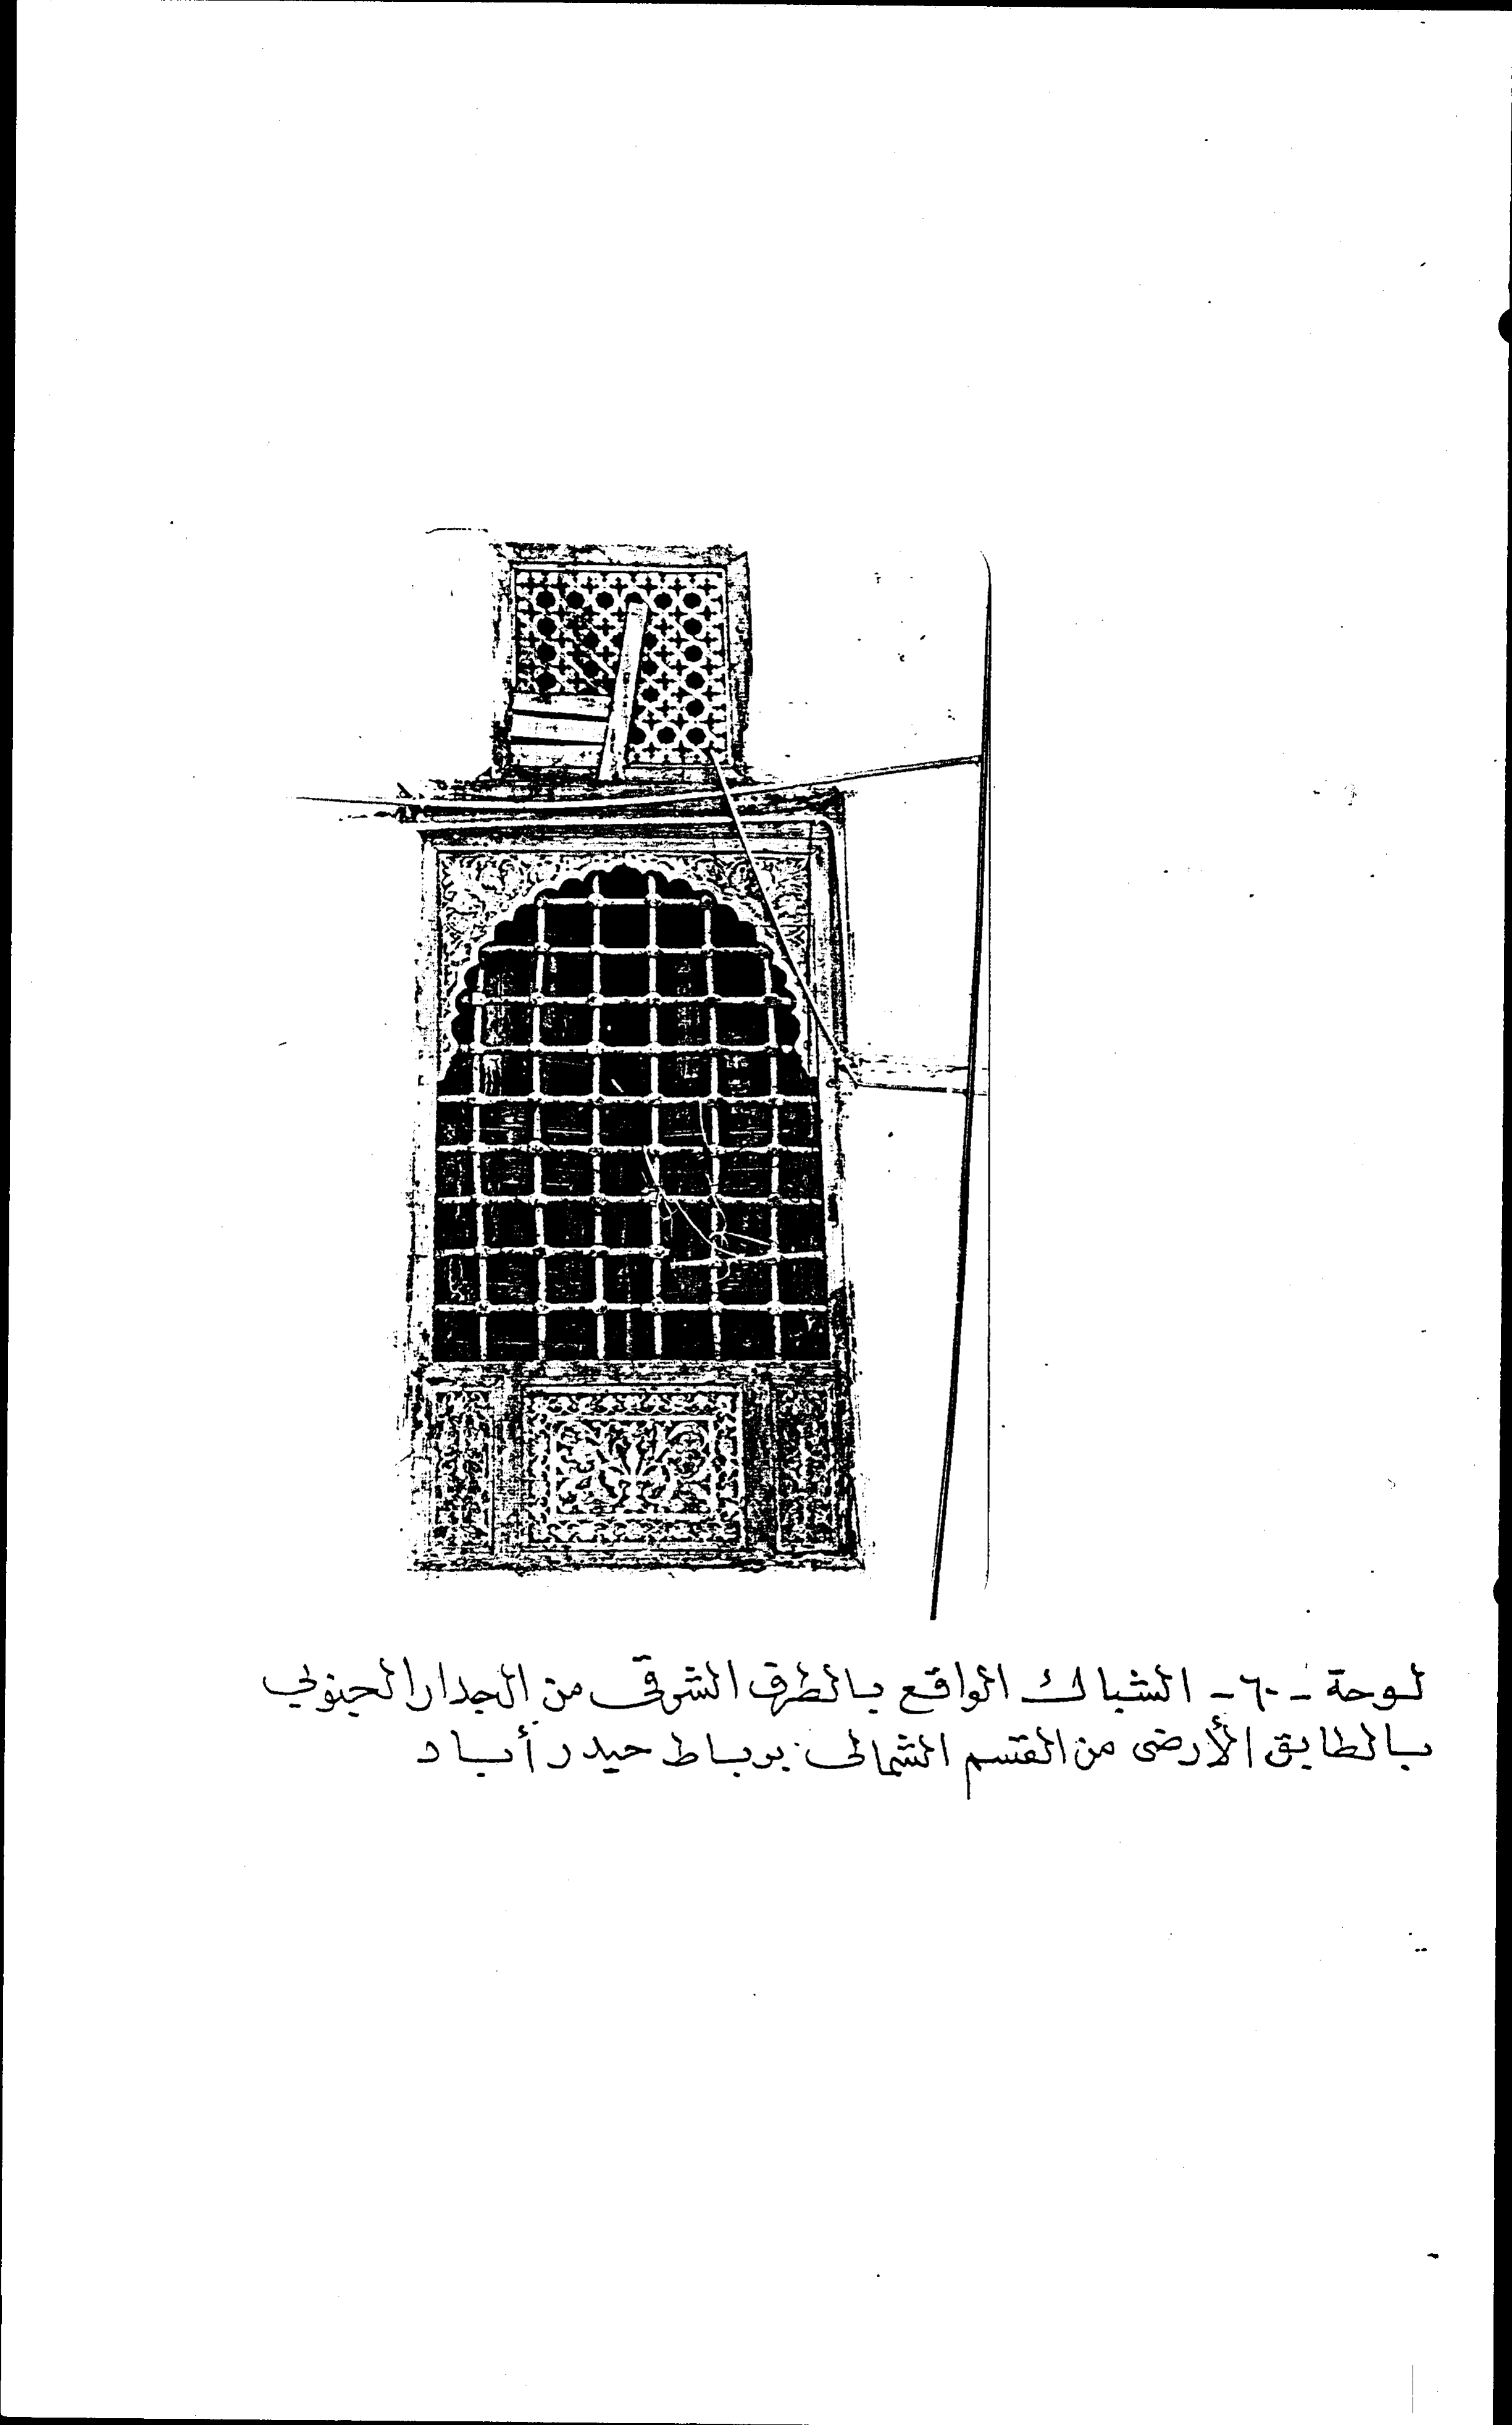 لوحة - ٦٠ - الشباك الواقع بالطرف الشرقى من الجدار الجنوبي
بالطابق الأرضى من القسم الشمالى برباط حيدر أباد